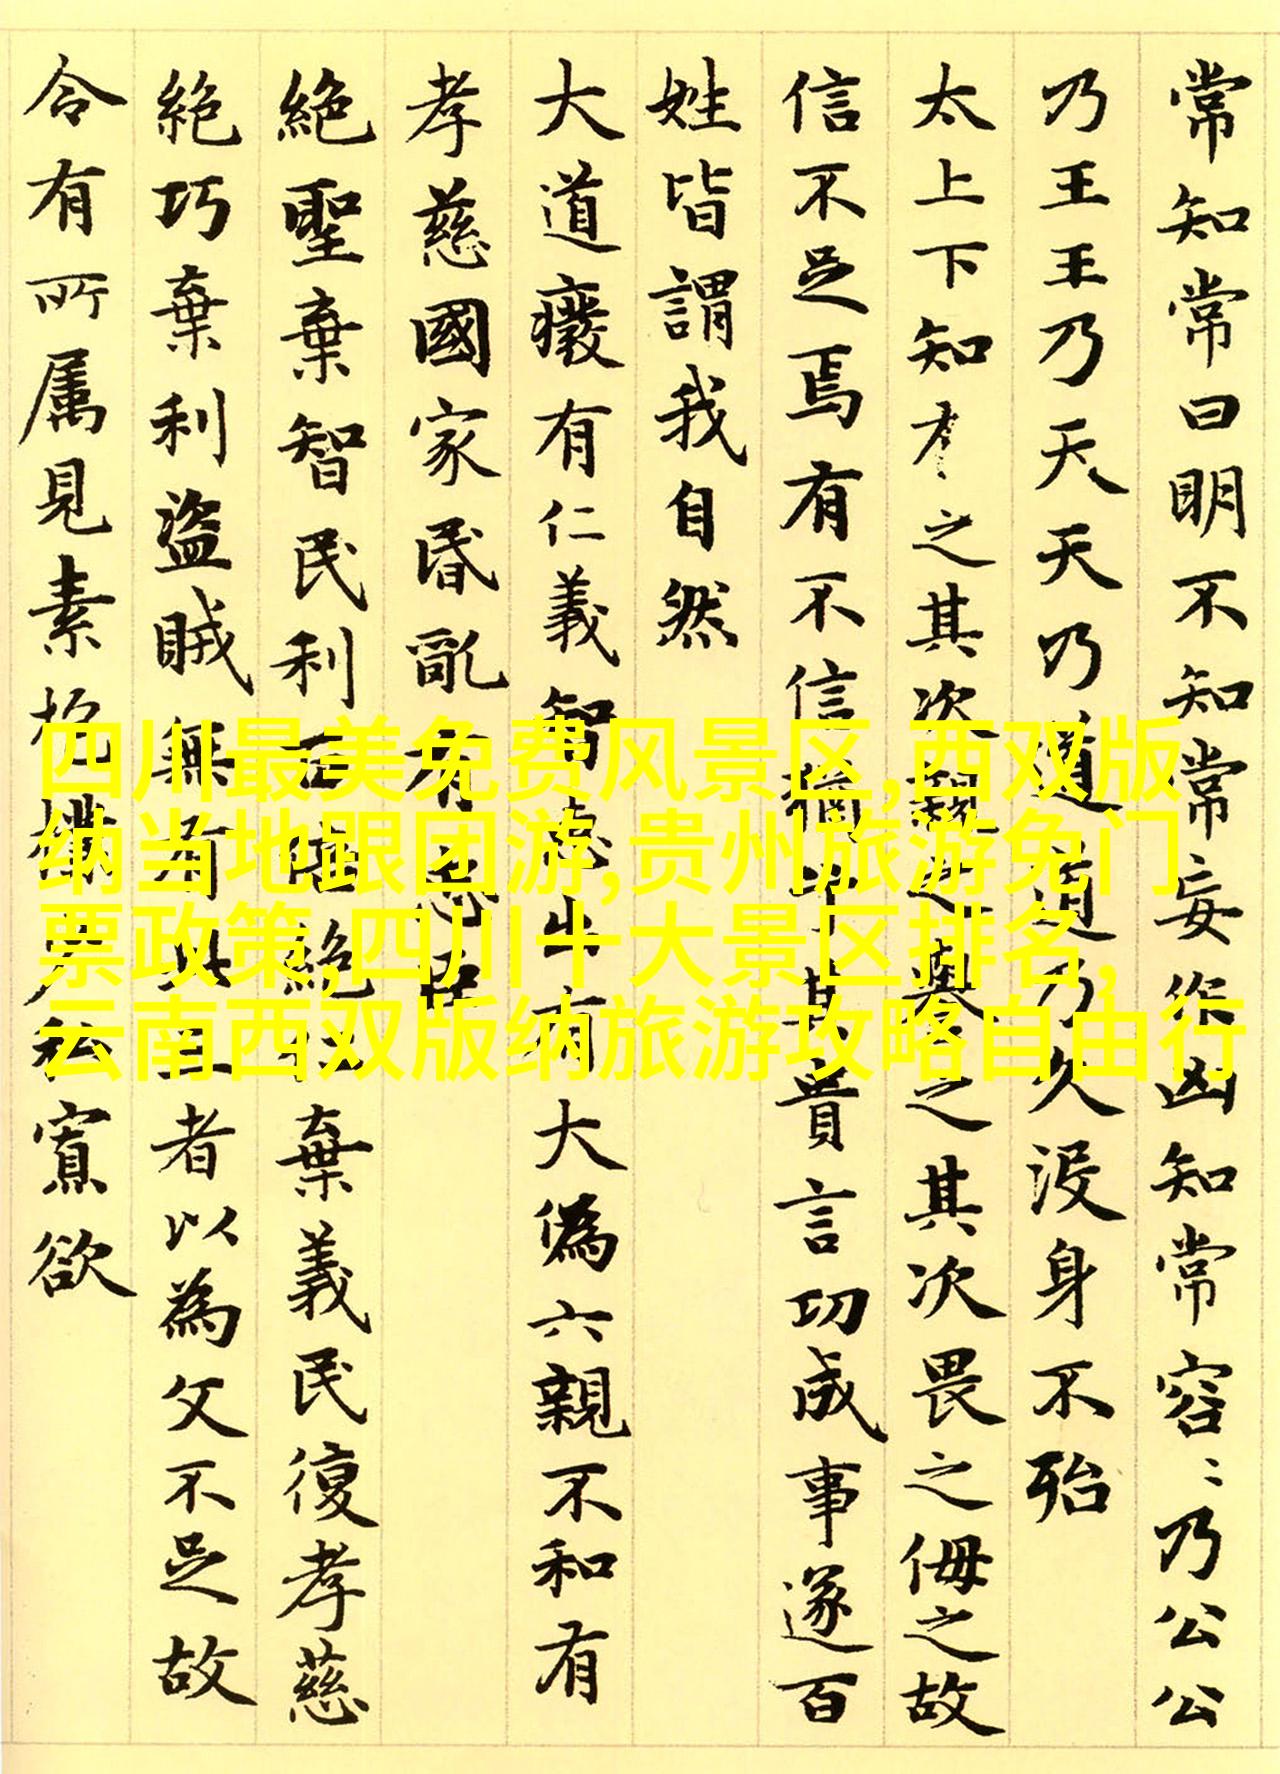 常知常曰明不知知常妄作凶知常容〻乃公公
乃王王乃天天乃道道乃久没身不殆
太上下知有之其次親之譽之其次畏之侮之故
信不足焉有不信猶其貴言功成事遂百
姓皆謂我自然
大道癈有仁義智惠出有大偽六親不和有
孝慈國家昏亂有忠
絶聖棄智民利百倍絶仁棄義民復孝慈
絶巧棄利盜賊無有此三者以為文不足故
令有所属見素抱樸少私寡欲
四川最美免费风景区,西双版
纳当地跟团游,贵州旅游免门
票政策,四川十大景区排名,
云南西双版纳旅游攻略自由行